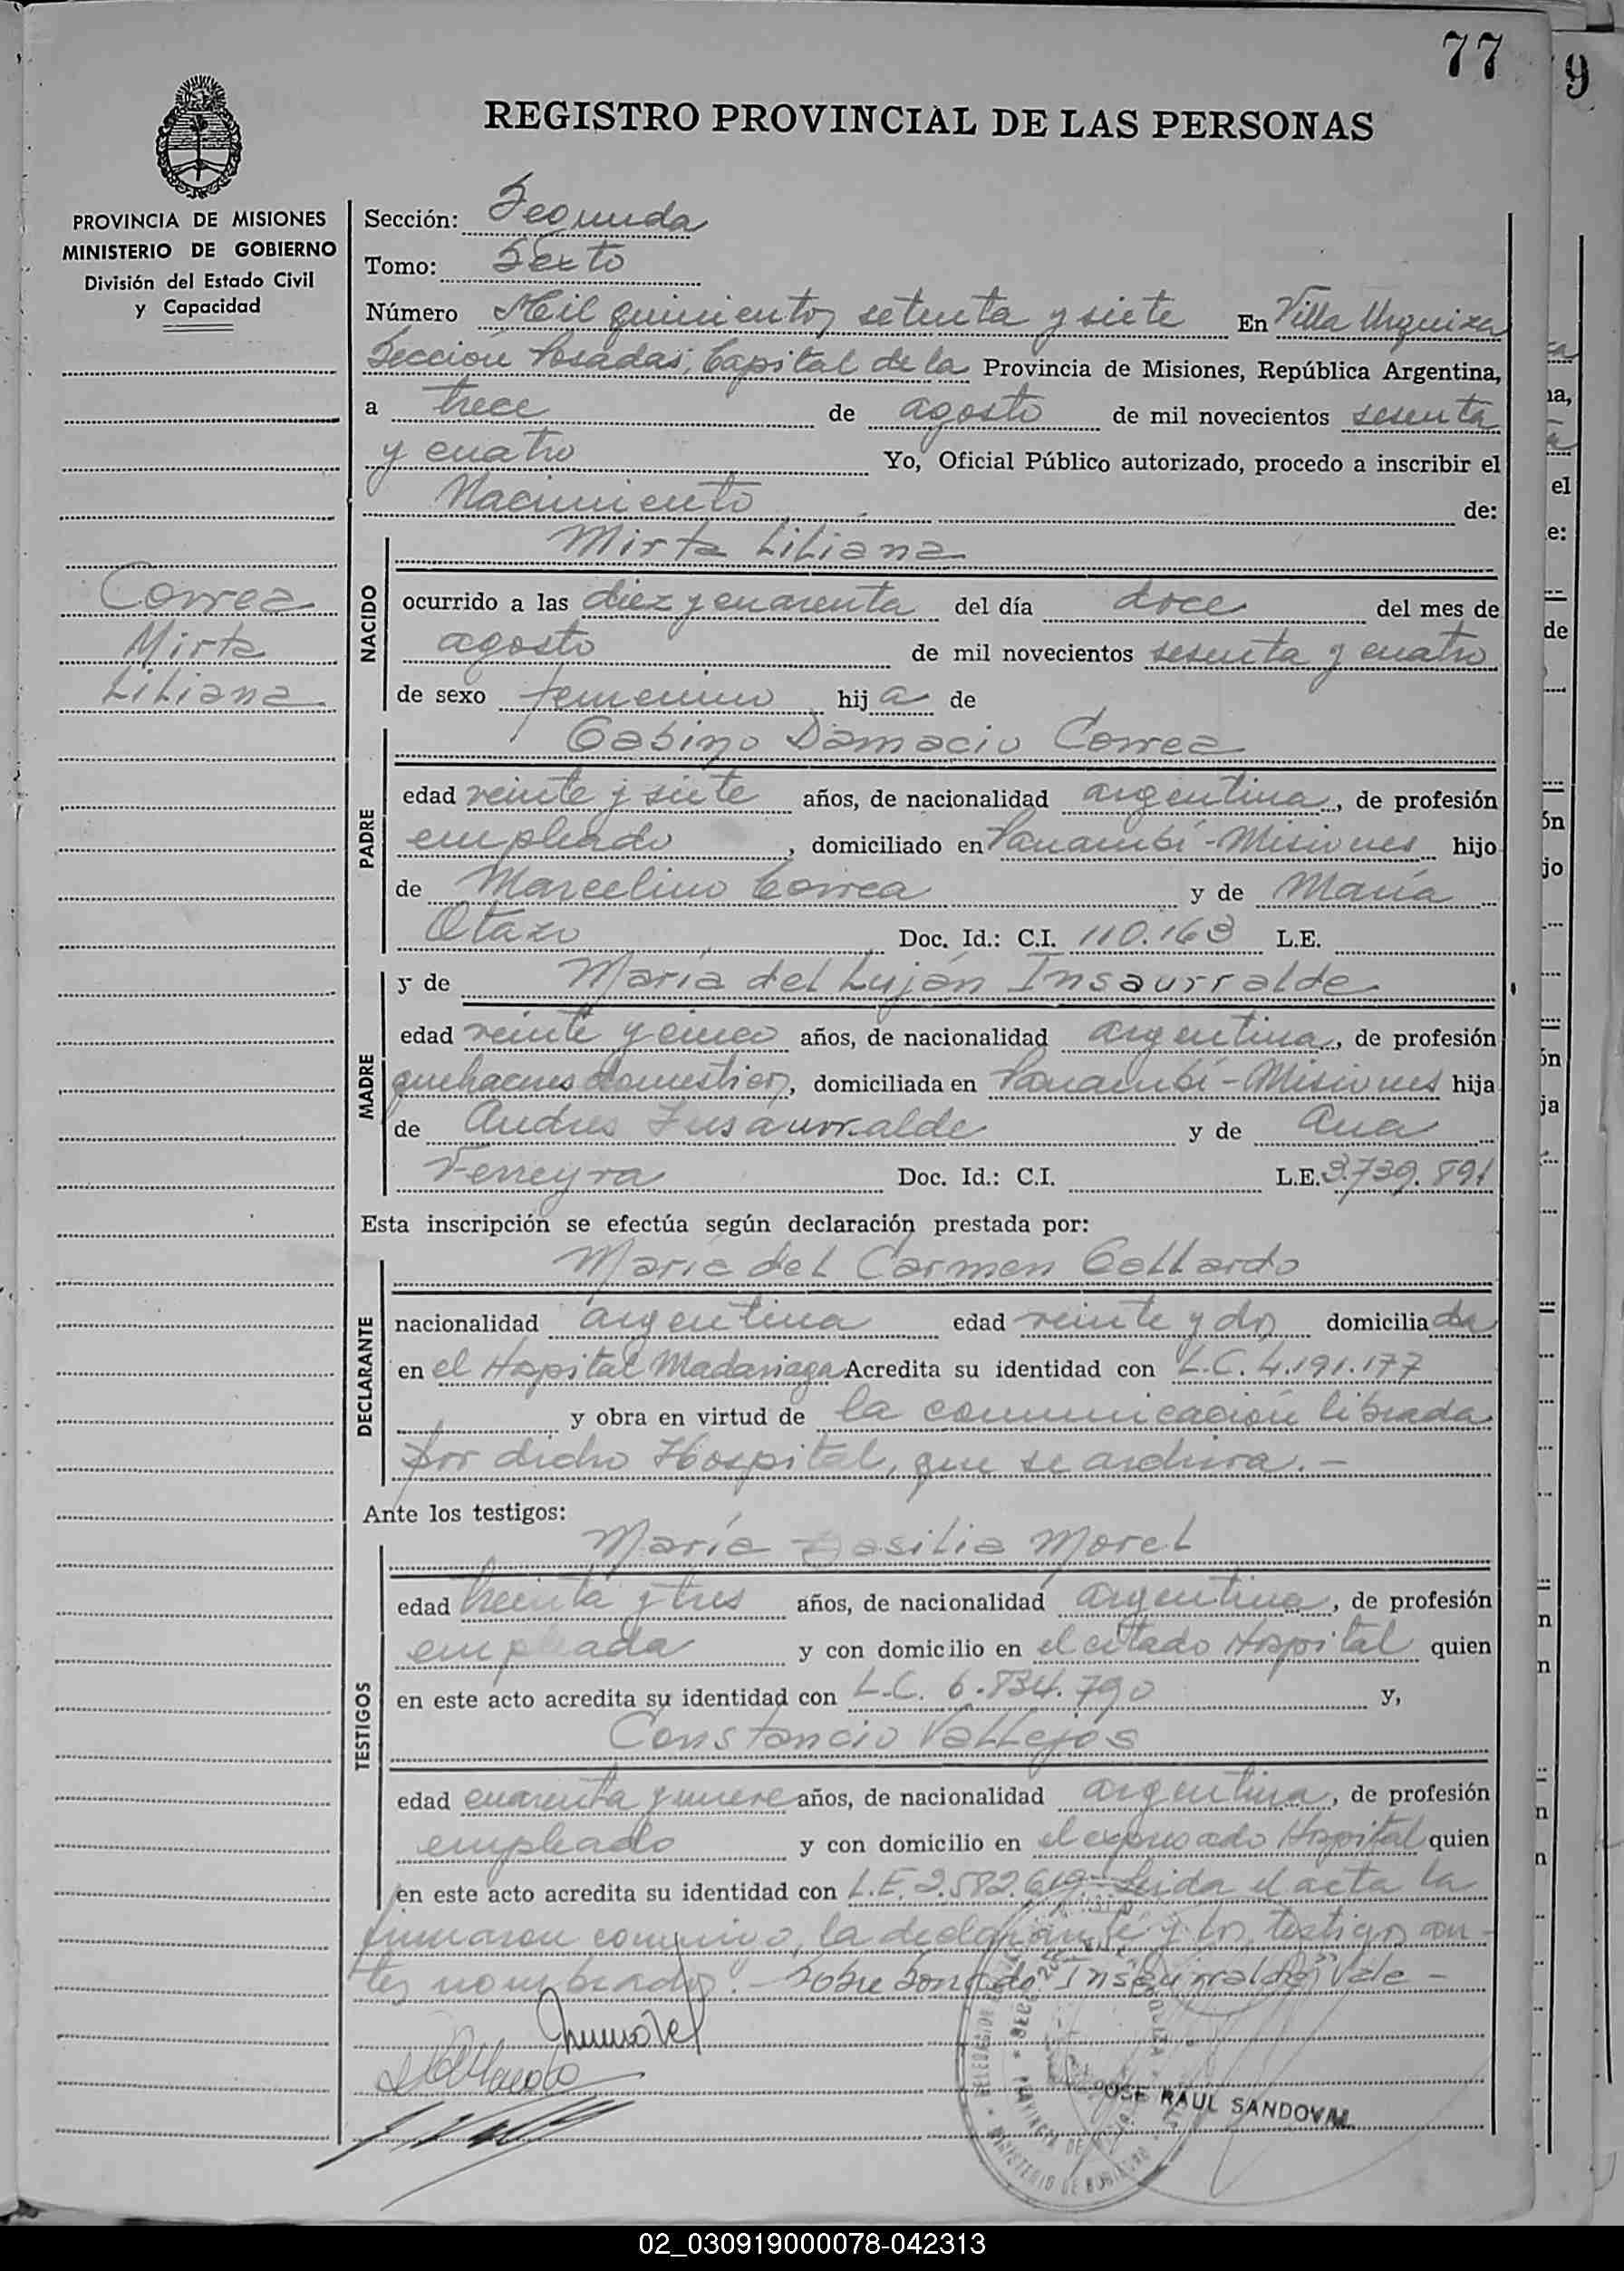 77
9
REGISTRO PROVINCIAL DE LAS PERSONAS
PROVINCIA DE MISIONES
MINISTERIO DE GOBIERNO
División del Estado Civil
y Capacidad
Correa
Mirta
Liliana
Sección: Segunda
Tomo: Sexto
Número Mil quinientos setenta y siete En Villa Urquiza
Sección Posadas, Capital de la Provincia de Misiones, República Argentina,
a trece de agosto de mil novecientos sesenta
y cuatro Yo, Oficial Público autorizado, procedo a inscribir el
Nacimiento de:
NACIDO
Mirta Liliana
ocurrido a las diez y cuarenta del día doce del mes de
agosto de mil novecientos sesenta y cuatro
de sexo femenino hija de
PADRE
Gabino Damacio Correa
edad veinte y siete años, de nacionalidad argentina, de profesión
empleado, domiciliado en Panambí - Misiones hijo
de Marcelino Correa y de María
Otazo Doc. Id.: C.I. 110.163 L.E.
MADRE
y de María del Luján Insaurralde
edad veinte y cinco años, de nacionalidad argentina, de profesión
quehaceres domésticos, domiciliada en Panambí - Misiones hija
de Andres Insaurralde y de Ana
Ferreyra Doc. Id.: C.I. L.E. 3.739.891
Esta inscripción se efectúa según declaración prestada por:
DECLARANTE
María del Carmen Gallardo
nacionalidad argentina edad veinte y dos domiciliada
en el Hospital Madariaga Acredita su identidad con L.C. 4.191.177
y obra en virtud de la comunicación librada
por dicho Hospital, que se archiva. -
Ante los testigos:
TESTIGOS
María Basilia Morel
edad treinta y tres años, de nacionalidad argentina, de profesión
empleada y con domicilio en el citado Hospital quien
en este acto acredita su identidad con L.C. 6.834.790 y,
Constancio Vallejos
edad cuarenta y nueve años, de nacionalidad argentina, de profesión
empleado y con domicilio en el expresado Hospital quien
en este acto acredita su identidad con L.E. 2.582.619. - Leída el acta la
firmaron conmigo, la declarante y los testigos an-
tes nombrados. - Sobre borrado: "Insaurralde" Vale -
JOSE RAUL SANDOVAL
MINISTERIO DE GOBIERNO
el
e:
de
ón
jo
ón
ja
n
n
n
n
02_030919000078-042313